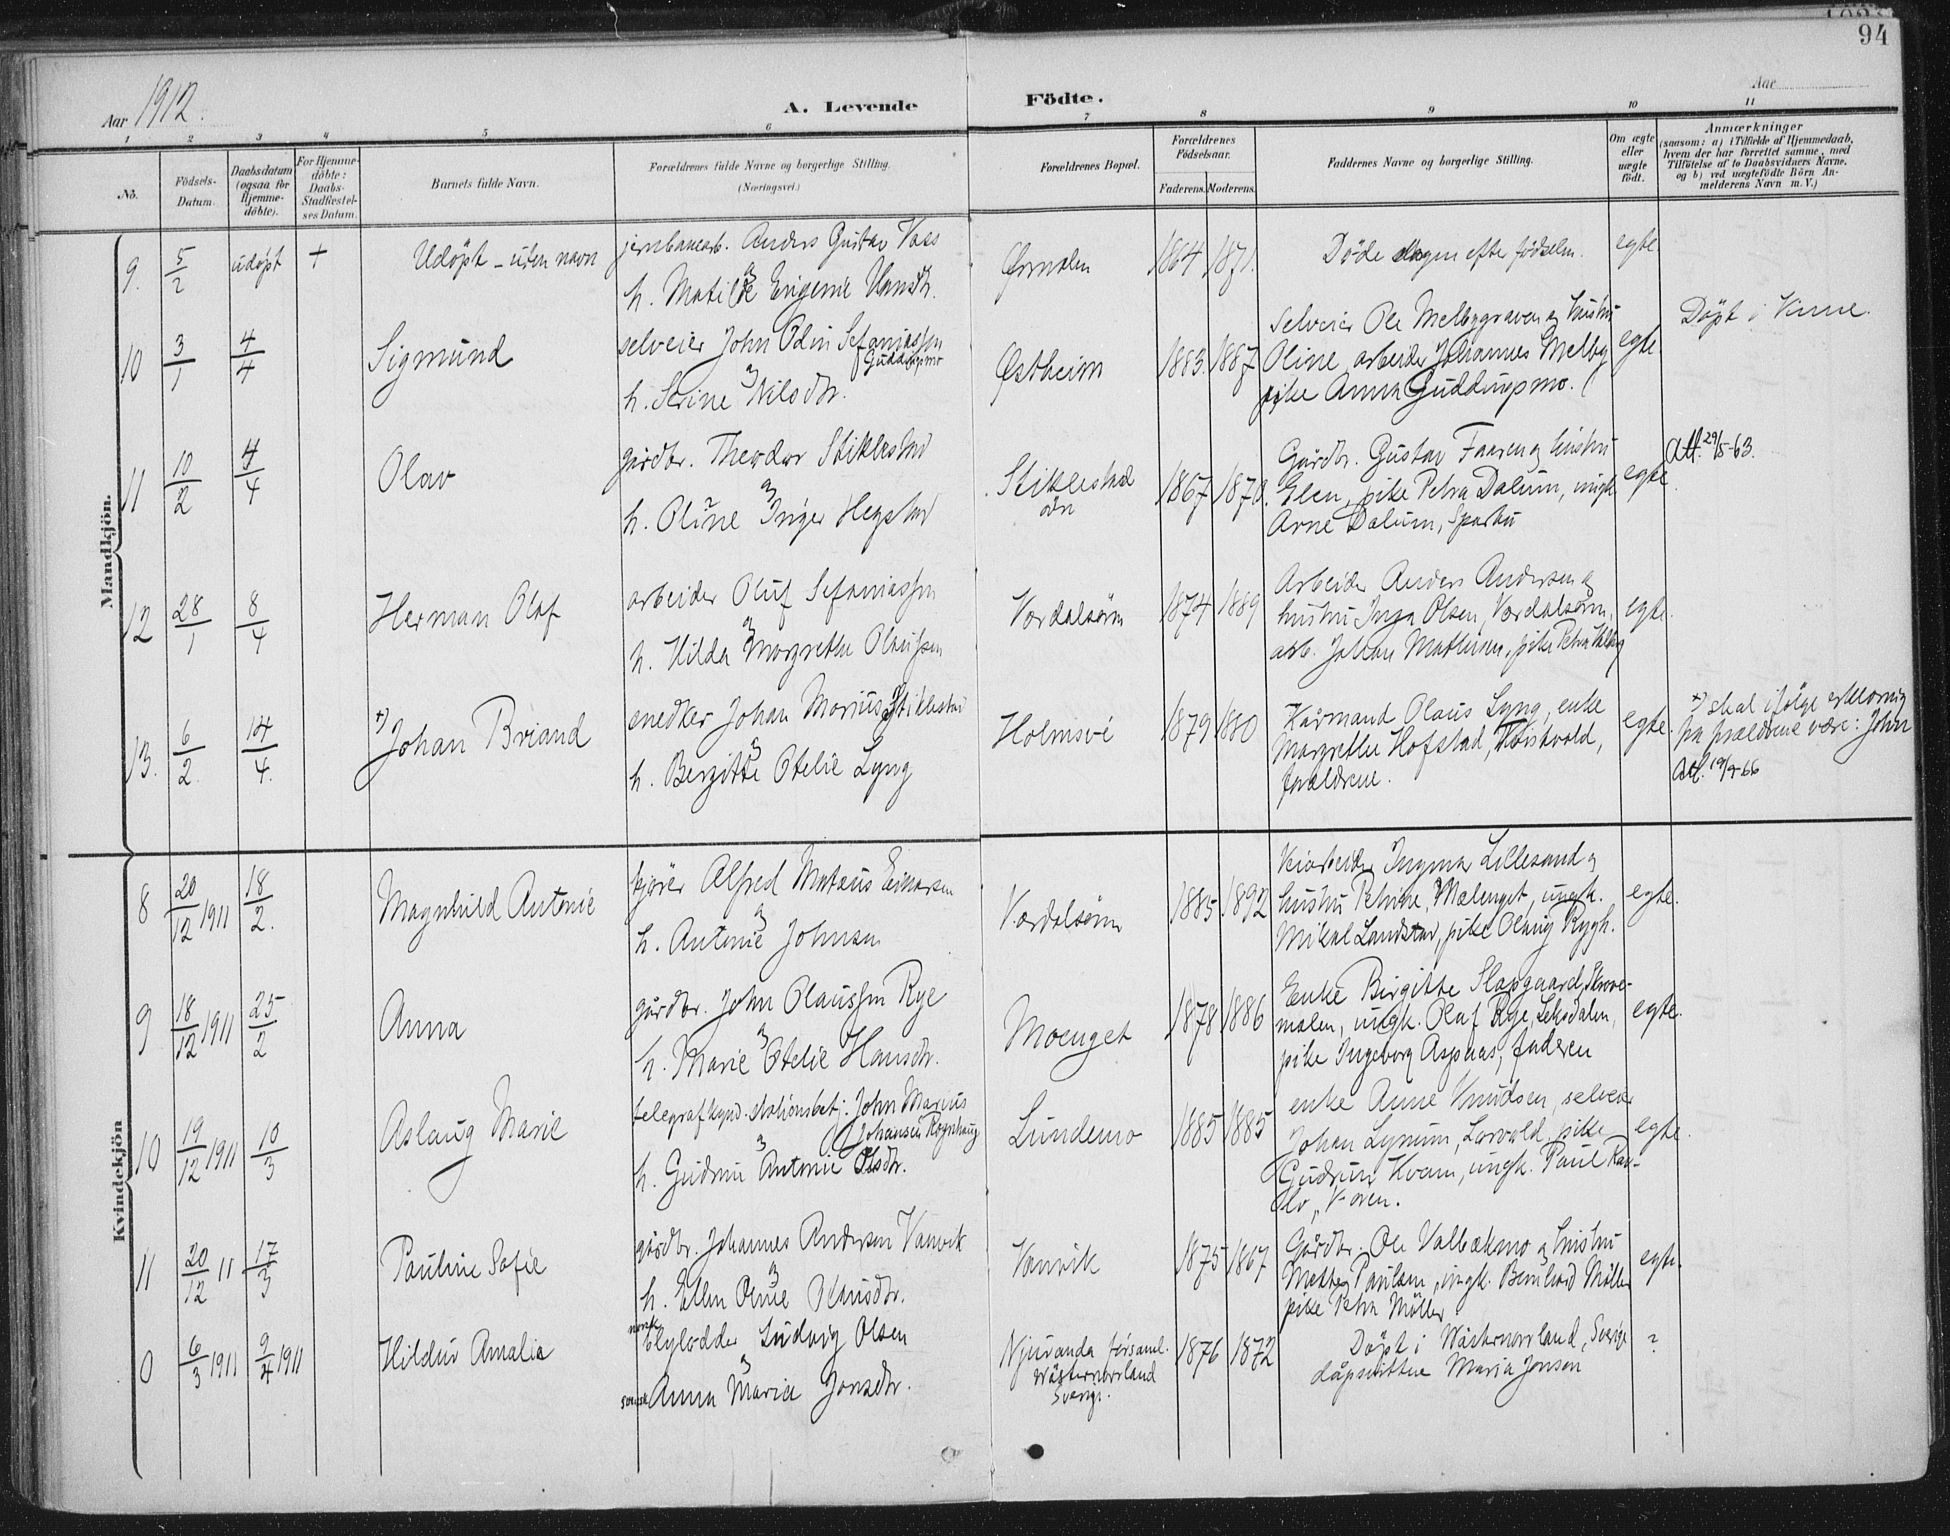 94
Aar 1912.
A. Levende Födte.
Aar
1 2 3 4 5 6 7 8 9 10 11
No.
Födsels-Datum.
Daabsdatum (ogsaa for Hjemme-döbte).
For Hjemme-döbte: Daabs-Stadfæstel-ses Datum.
Barnets fulde Navn.
Forældrenes fulde Navne og borgerlige Stilling.
(Næringsvei.)
Forældrenes Bopæl.
Forældrenes Födselsaar.
Faderens. Moderens.
Faddernes Navne og borgerlige Stilling.
Om ægte eller uægte födt.
Anmærkninger
(saasom: a) i Tilfælde af Hjemmedaab, hvem der har forrettet samme, med Tilföielse af to Daabsvidners Navne, og b) ved uægtefödte Börn An-melderens Navn m. V.)
Mandkjön.
9. 5/2 udøpt + Udöpt - uten navn
jernbanearb. Anders Gustav Vass
og
h. Matilde Eugenie Hansdtr.
Ørmelen 1864 1871.
Döde dagen efter födselen.
egte
10 3/1 4/4 Sigmund
selveier John Odin Sefaniassen
Guddingsmo
og
h. Serine Nilsdtr.
Østheim 1883. 1887
Selveier Ole Melbygraven og hustru
Oline, arbeider Johannes Melby
pike Anna Guddingsmo.
egte.
Döpt i Vinne.
11 10/2 4/4 Olav
gårdbr. Theodor Stiklestad
og
h. Oline Inger Hegstad
Stiklestad
1867 1878.
Gårdbr. Gustav Faaren og hustru
Elen, pike Petra Dalum, ungk.
Arne Dalum, Sparbu
egte.
Att. 29/5-63.
12 28/1 8/4 Herman Olaf
arbeider Oluf Sefaniassen
og
h. Hilda Margrethe Olausen
Værdalsøren 1874 1889
Arbeider Anders Andersen og
hustru Inga Olsen, Værdalsøren,
arb. Johan Mathisen, pike Petra
egte.
13. 6/2. 14/4. +) Johan Briand
snedker Johan Marius Stiklestad
og
h. Bergitte Otelie Lyng
Holmsvé 1879 1880
Kårmand Olaus Lyng, enke
Margrethe Hofstad,
forældrene.
egte.
+) skal ifølge erklæring
fra forældrene være: John
Att. 19/9-66
Kvindekjön
8 20/12 1911 18/2. Magnhild Antonie
kjører Alfred Mateus Einarsen
og
h. Antonie Johnsen
Værdalsøren 1885. 1892
Veiarbeider Ingvar Lillesand og
hustru Petrine, Mælenget, ungk.
Mikal Landstad, pike Olaug Rygh.
egte.
9 18/12 1911 25/2 Anna
gårdbr. John Olaussen Rye
og
h. Marie Otelie Hansdtr.
Moenget 1878 1886
Enke Birgitte Slapgaard, Skrove-
malen, ungk. Olaf Rye, Leksdalen,
pike Ingeborg Aspaas, faderen
egte.
10 19/12 1911 10/3 Aslaug Marie
telegrafkynd. stationsbetj. John Marius
Johansen Rognhaug
og
h. Gudrun Antonie Olsdtr.
Lundemo 1885 1885
enke Anne Knudsen, selveier
Johan Lynum, Lorvald, pike
Gudrun Kvam, ungk. Paul Rav-
lo, Voren.
egte.
11 20/12 11 17/3 Pauline Sofie
gårdbr. Johannes Andersen Vanvik
og
h. Ellen Oline Olausdtr.
Vanvik 1875 1867
Gårdbr. Ole Valbækmo og hustru
Mette Paulsen, ungk. Bernhard Müller
pike Petra Müller
egte.
0 6/3 1911 9/4 1911 Hildur Amalia
norsk
Skylodder Ludvig Olsen
og
svensk Anna Maria Jonsdtr.
Njurunda församl.
Wästernorrland
Sverige.
1876 1872
Döpt i Wästernorrland, Sverige
dåpsvittne Maria Jonson
?